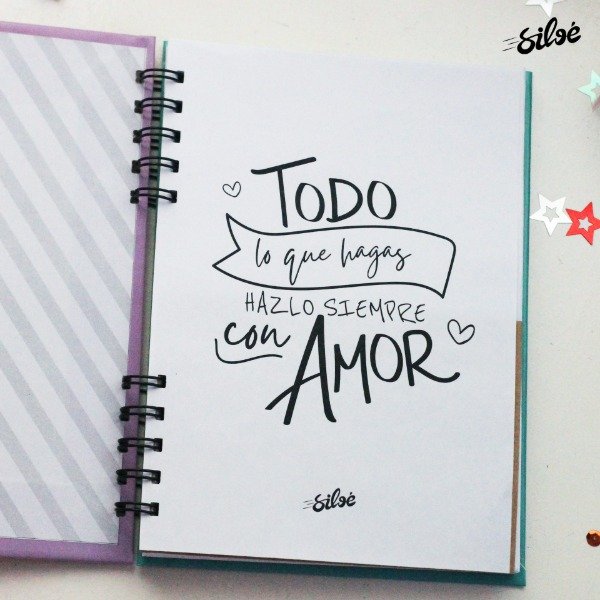 Silvé
TODO
lo que hagas
HAZLO SIEMPRE
con AMOR
Silvé